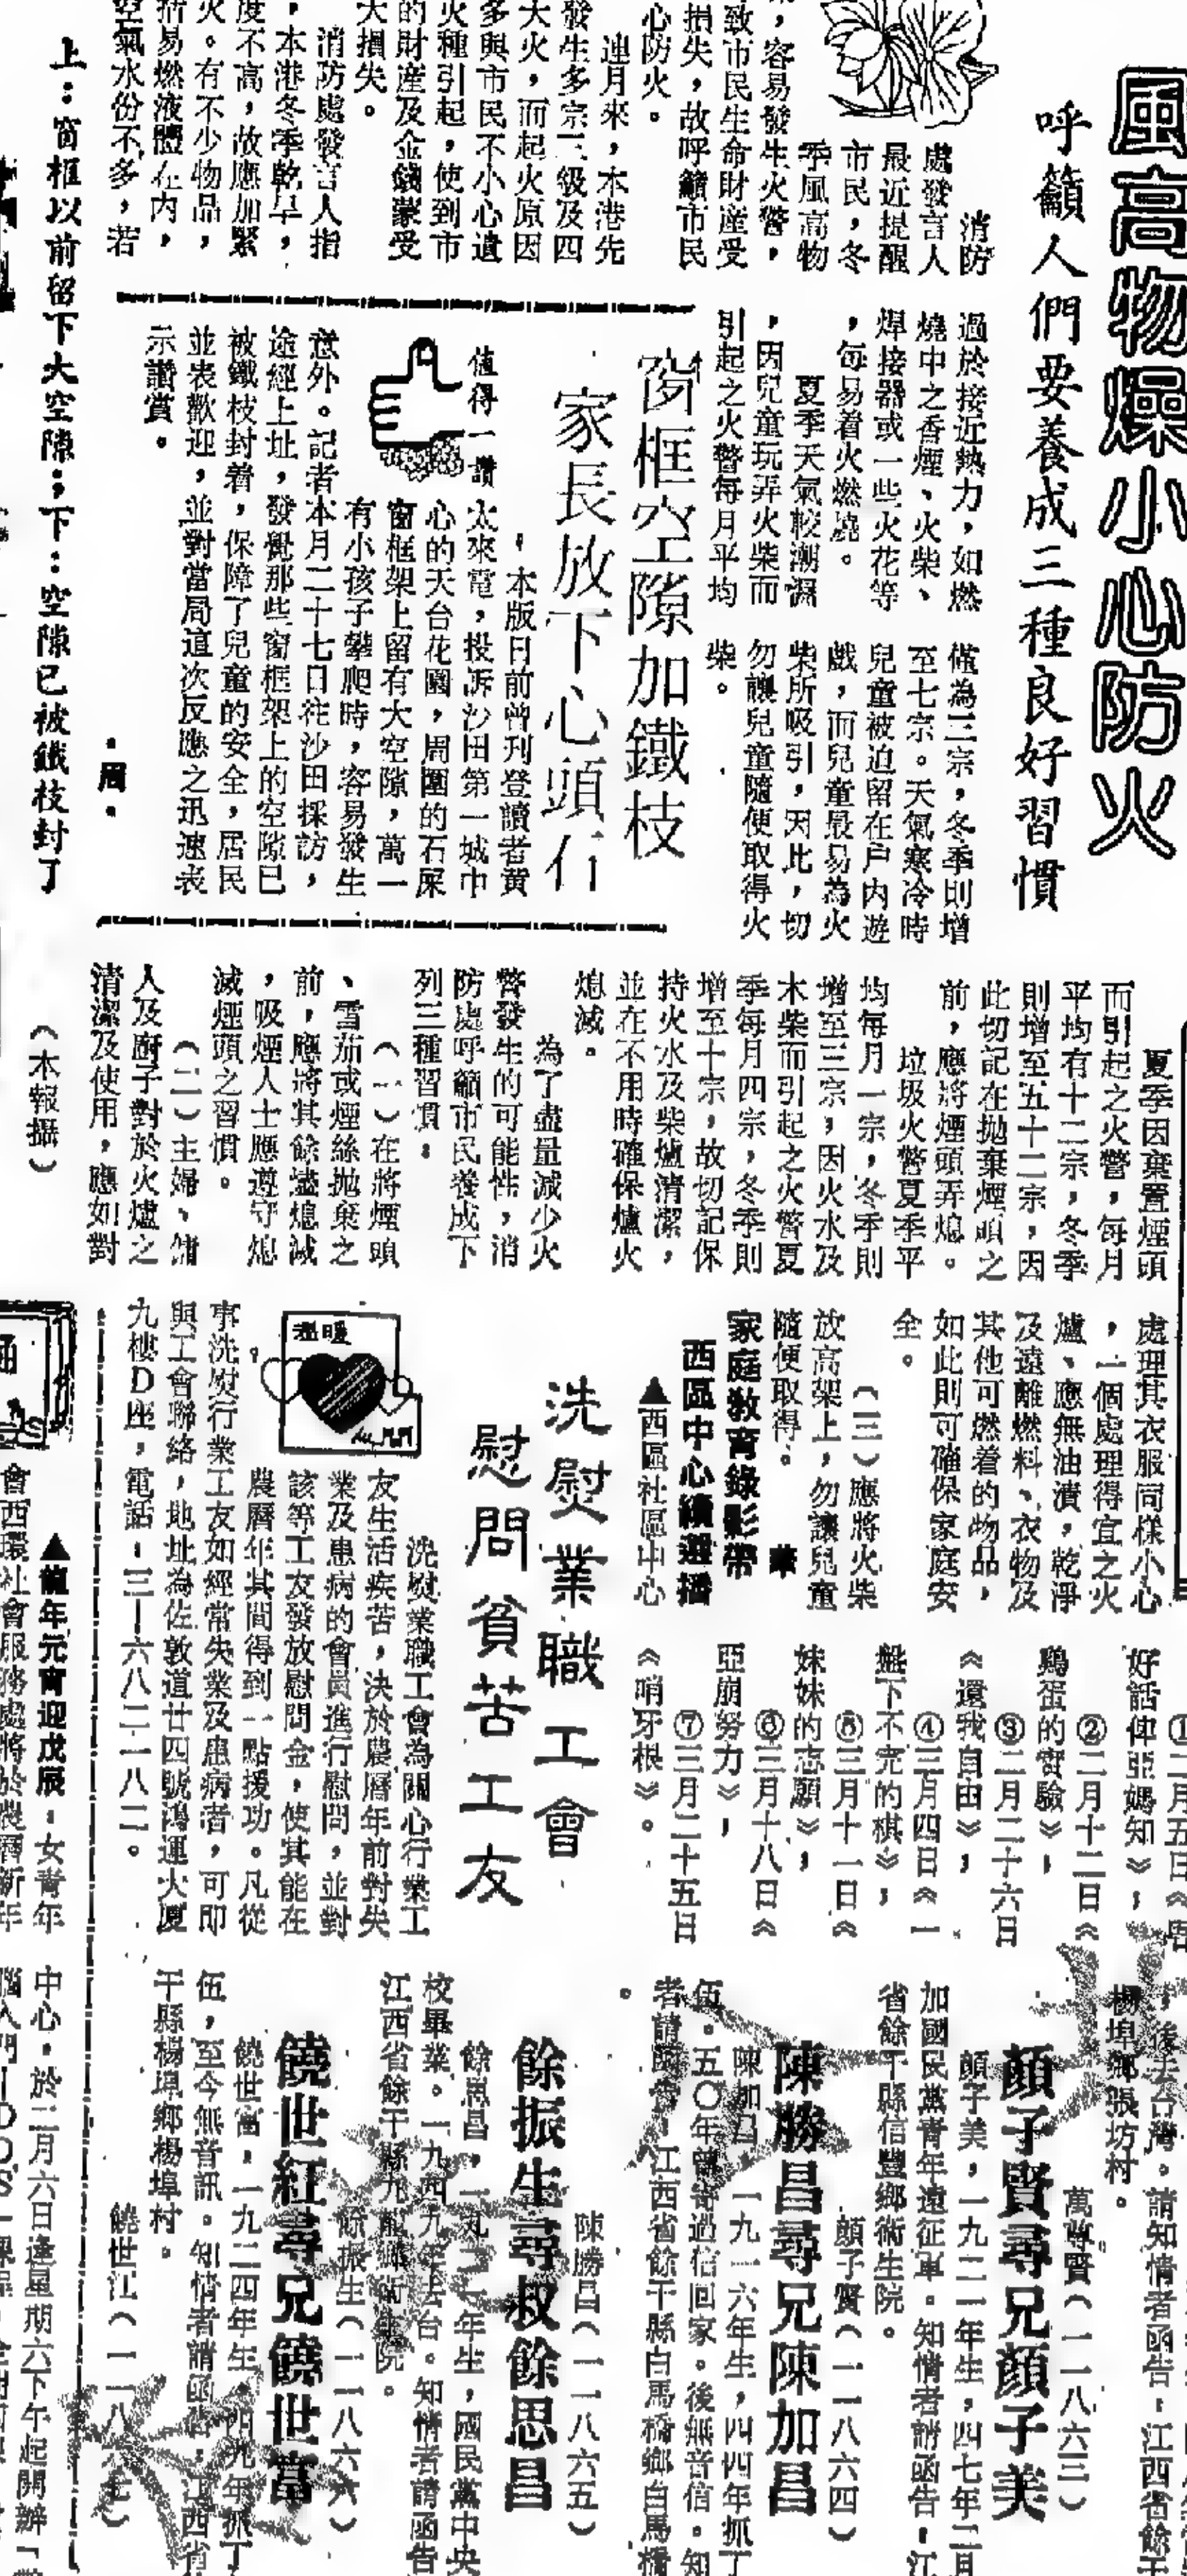 風高物燥小心防火
呼籲人們要養成三種良好習慣
消防
處發言人
最近提醒
市民，冬
季風高物
，容易發生火警，
致市民生命財產受
損失，故呼籲市民
心防火。
連月來，本港先
發生多宗三級及四
大火，而起火原因
多與市民不小心遺
火種引起，使到市
的財產及金錢蒙受
大損失。
消防處發言人指
，本港冬季乾旱，
度不高，故應加緊
火。有不少物品，
括易燃液體在內，
空氣水份不多，若
過於接近熱力，如燃
燒中之香煙、火柴、
焊接器或一些火花等
，每易着火燃燒。
夏季天氣較潮濕
，因兒童玩弄火柴而
引起之火警每月平均
僅為三宗，冬季則增
至七宗。天氣寒冷時
兒童被迫留在戶內遊
戲，而兒童最易為火
柴所吸引，因此，切
勿讓兒童隨便取得火
柴。
夏季因棄置煙頭
而引起之火警，每月
平均有十二宗，冬季
則增至五十二宗，因
此切記在拋棄煙頭之
前，應將煙頭弄熄。
垃圾火警夏季平
均每月一宗，冬季則
增至三宗，因火水及
木柴而引起之火警夏
季每月四宗，冬季則
增至十宗，故切記保
持火水及柴爐清潔，
並在不用時確保爐火
熄滅。
為了盡量減少火
警發生的可能性，消
防處呼籲市民養成下
列三種習慣：
（一）在將煙頭
、雪茄或煙絲拋棄之
前，應將其餘燼熄滅
，吸煙人士應遵守熄
滅煙頭之習慣。
（二）主婦、傭
人及廚子對於火爐之
清潔及使用，應如對
處理其衣服同樣小心
，一個處理得宜之火
爐、應無油漬，乾淨
及遠離燃料、衣物及
其他可燃着的物品，
如此則可確保家庭安
全。
（三）應將火柴
放高架上，勿讓兒童
隨便取得。
窗框空隙加鐵枝
家長放下心頭石
值得一讚
本版日前曾刊登讀者黃
太來電，投訴沙田第一城中
心的天台花園，周圍的石屎
窗框架上留有大空隙，萬一
有小孩子攀爬時，容易發生
意外。記者本月二十七日往沙田採訪，
途經上址，發覺那些窗框架上的空隙已
被鐵枝封着，保障了兒童的安全，居民
並表歡迎，並對當局這次反應之迅速表
示讚賞。
·周·
上：窗框以前留下大空隙；下：空隙已被鐵枝封了
（本報攝）
家庭教育錄影帶
西區中心續選播
▲西區社區中心
①二月五日《
好話俾亞媽知》；
②二月十二日《
鷄蛋的實驗》；
③二月二十六日
《還我自由》；
④三月四日《一
盤下不完的棋》；
⑤三月十一日《
妹妹的志願》；
⑥三月十八日《
亞崩努力》；
⑦三月二十五日
《哨牙根》。
洗熨業職工會
慰問貧苦工友
溫暖
洗熨業職工會為關心行業工
友生活疾苦，決於農曆年前對失
業及患病的會員進行慰問，並對
該等工友發放慰問金，使其能在
農曆年其間得到一點援功。凡從
事洗熨行業工友如經常失業及患病者，可即
與工會聯絡，地址為佐敦道廿四號鴻運大厦
九樓D座，電話：三—六八二一八二。
▲龍年元宵迎戊辰：女青年
會西環社會服務處將於農曆新年
，後去台灣。請知情者函告：江西省餘干
楊埠鄉張坊村。
萬尊賢（一一八六三）
顏子賢尋兄顏子美
顏子美，一九二一年生，四七年二月
加國民黨青年遠征軍。知情者請函告：江
省餘干縣信豐鄉衛生院。
顏子賢（一一八六四）
陳勝昌尋兄陳加昌
陳加昌，一九一六年生，四四年抓丁
伍。五〇年曾寄過信回家。後無音信。知
者請函告：江西省餘干縣白馬橋鄉白馬橋
。
陳勝昌（一一八六五）
餘振生尋叔餘思昌
餘思昌，一九二一年生，國民黨中央
校畢業。一九四九年去台。知情者請函告
江西省餘干縣九龍鄉衛生院。
餘振生（一一八六六）
饒世紅尋兄饒世富
饒世富，一九二四年生，四九年抓丁
伍，至今無音訊。知情者請函告：江西省
干縣楊埠鄉楊埠村。
饒世江（一一八六七）
中心，於二月六日逢星期六下午起開辦「